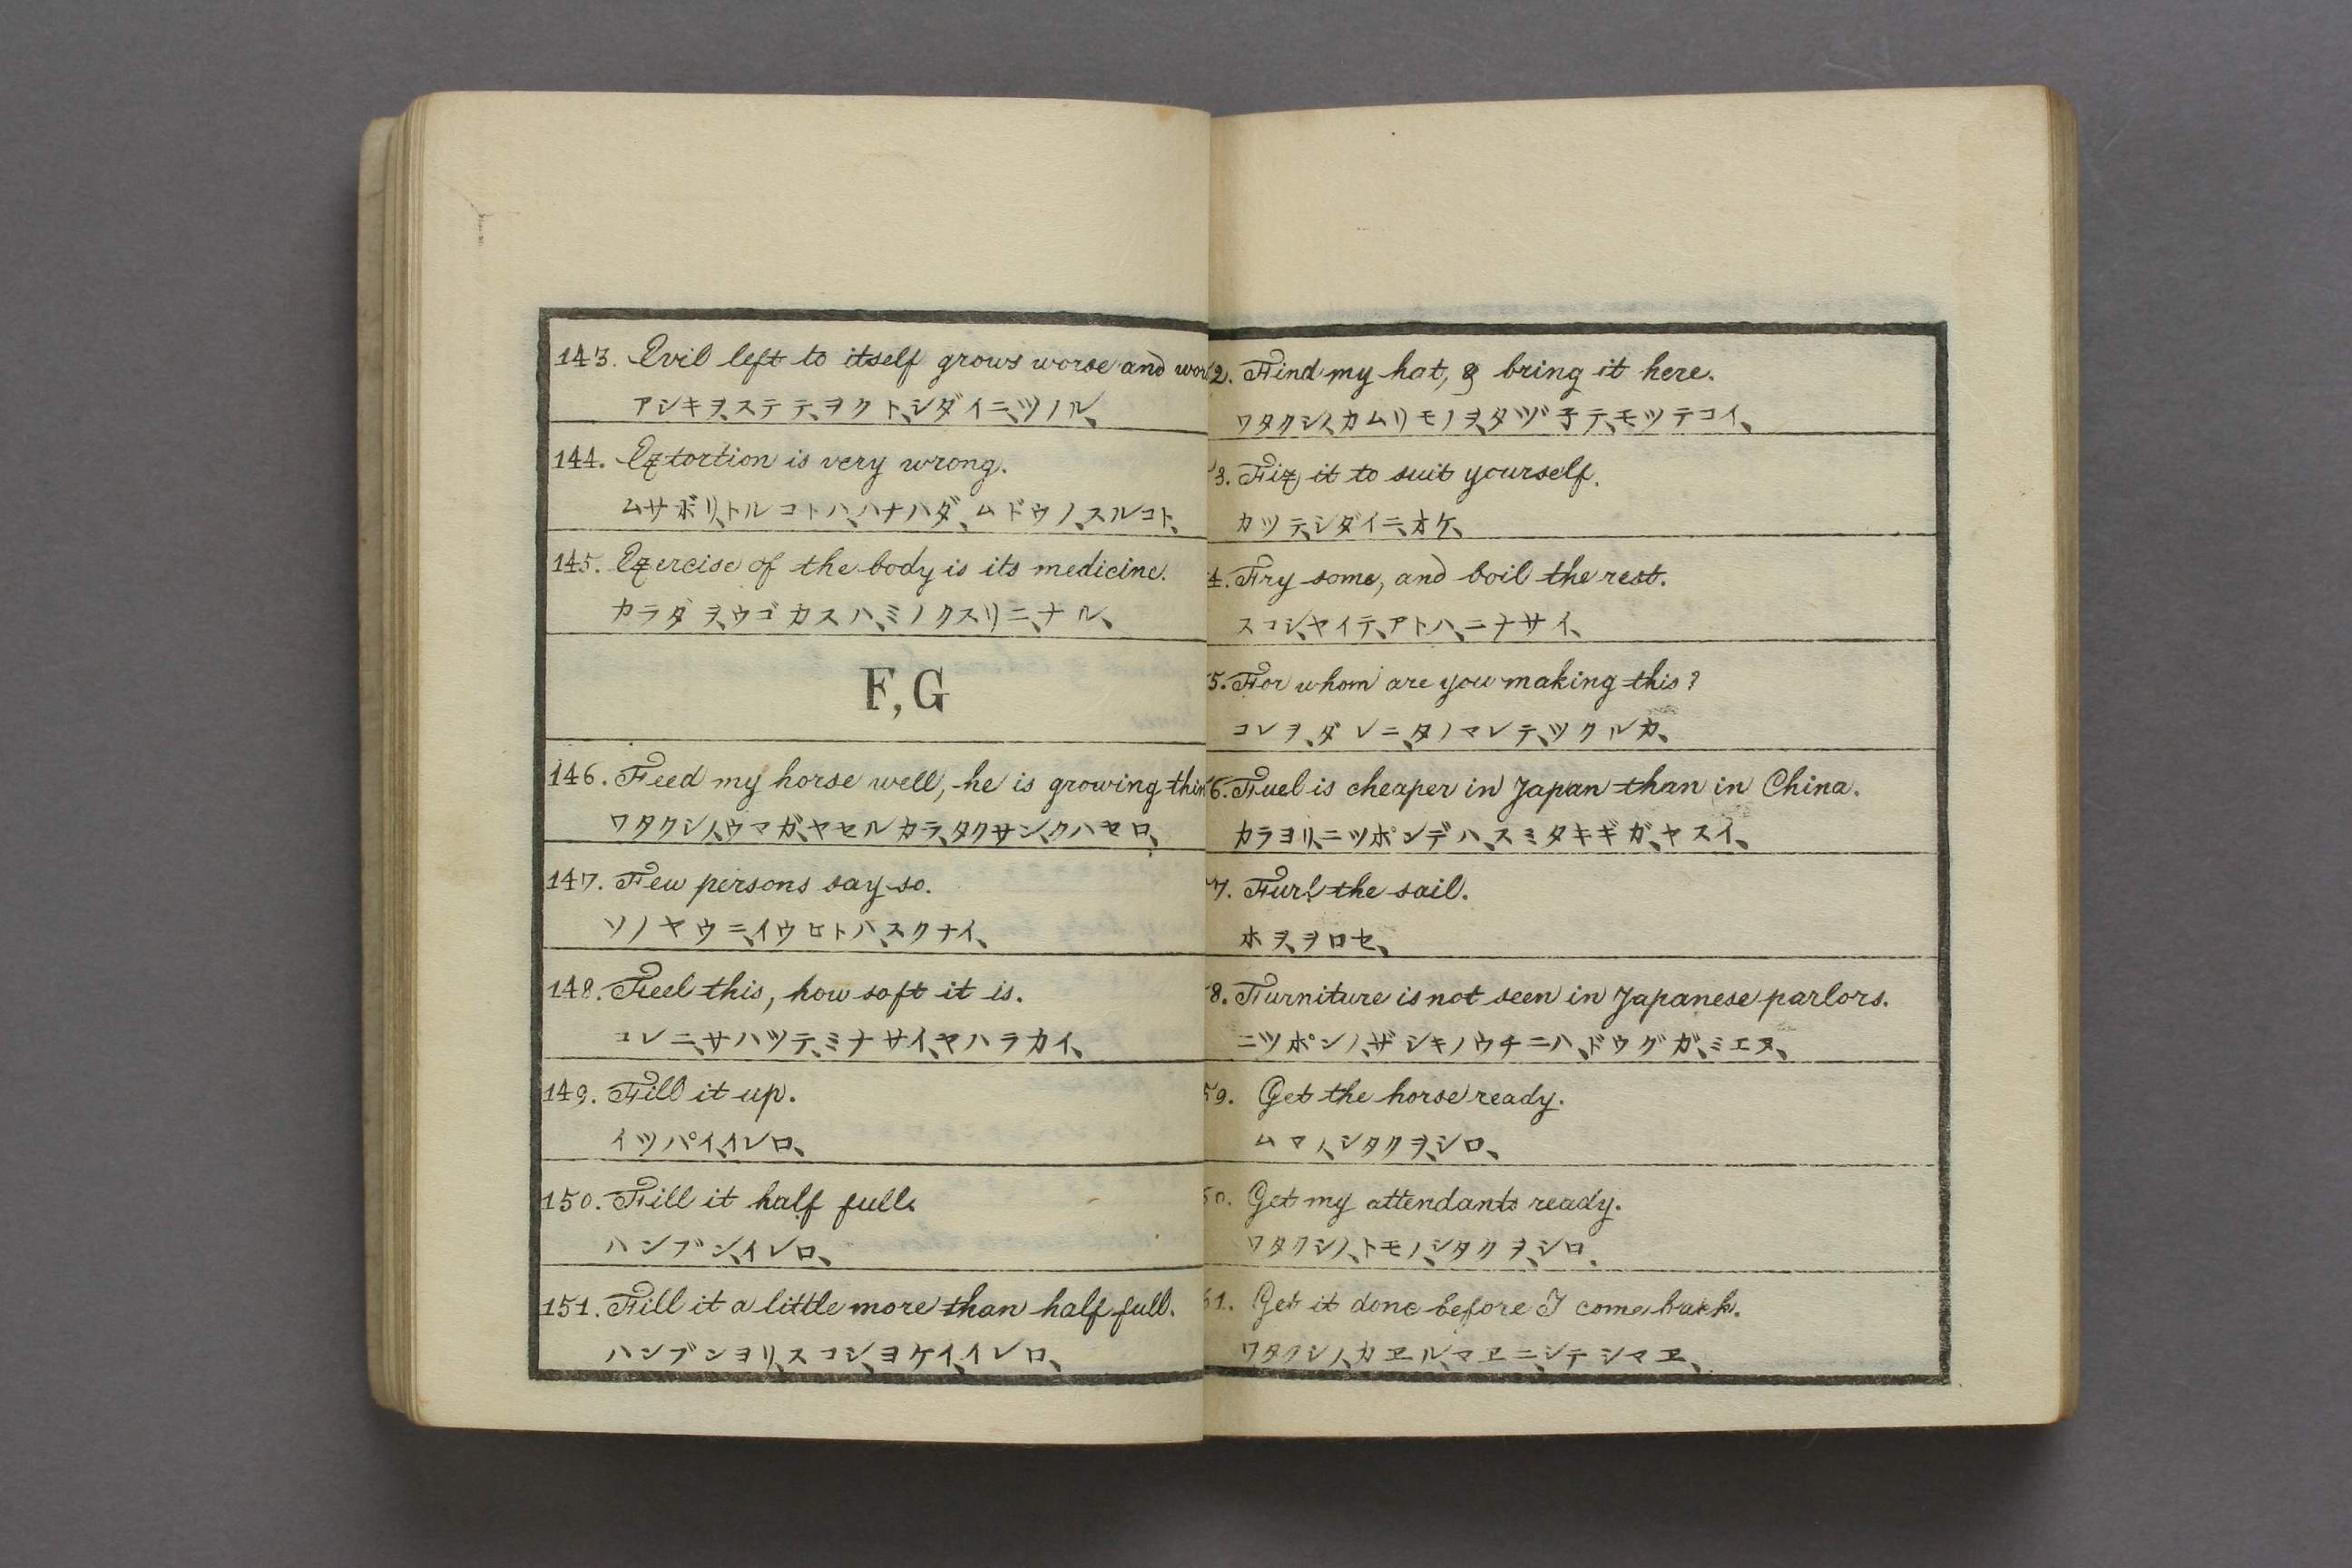 143. Evil left to itself grows worse and wor
アシキヲ、ステテ、ヲクト、シダイニ、ツノル、
144. Extortion is very wrong.
ムサボリ、トルコトハ、ハナハダ、ムドウノ、スルコト、
145. Exercise of the body is its medicine.
カラダヲ、ウゴカスハ、ミノクスリニ、ナル、
F, G
146. Feed my horse well, he is growing thin
ワタクシノ、ウマガ、ヤセルカラ、タクサン、クハセロ、
147. Few persons say so.
ソノヤウニ、イウヒトハ、スクナイ、
148. Feel this, how soft it is.
コレニ、サハツテ、ミナサイ、ヤハラカイ、
149. Fill it up.
イツパイ、イレロ、
150. Fill it half full.
ハンブン、イレロ、
151. Fill it a little more than half full.
ハンブンヨリ、スコシ、ヨケイ、イレロ、
2. Find my hat, & bring it here.
ワタクシノ、カムリモノヲ、タヅ子テ、モツテコイ、
3. Fix it to suit yourself.
カツテ、シダイニ、オケ、
4. Fry some, and boil the rest.
スコシ、ヤイテ、アトハ、ニナサイ、
5. For whom are you making this?
コレヲ、ダレニ、タノマレテ、ツクルカ、
6. Fuel is cheaper in Japan than in China.
カラヨリ、ニツポンデハ、スミタキギガ、ヤスイ、
7. Furl the sail.
ホヲ、ヲロセ、
8. Furniture is not seen in Japanese parlors.
ニツポンノ、ザシキノウチニハ、ドウグガ、ミエヌ、
59. Get the horse ready.
ムマノ、シタクヲ、シロ、
60. Get my attendants ready.
ワタクシノ、トモノ、シタクヲ、シロ、
61. Get it done before I come back.
ワタクシノ、カヱル、マヱニ、シテシマヱ、